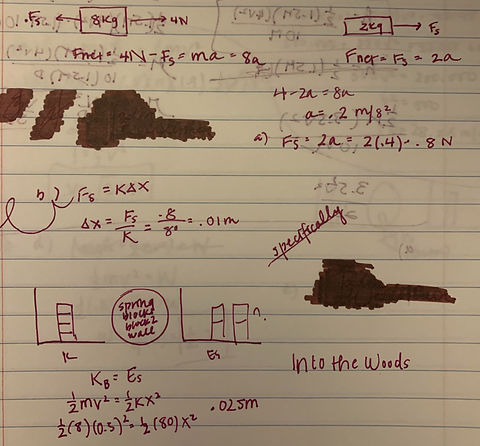 Fs 8kg 4N
2kg Fs
Fnet = 4N - Fs = ma = 8a
Fnet = Fs = 2a
4 - 2a = 8a
a = .2 m/s²
a) Fs = 2a = 2(.4) = .8 N
b) Fs = KΔX
ΔX = Fs/K = .8/80 = .01m
specifically
spring
block1
block2
wall
K
Es
Into the Woods
KB = Es
½mv² = ½KX²
.025m
½(8)(0.5)² = ½(80)X²